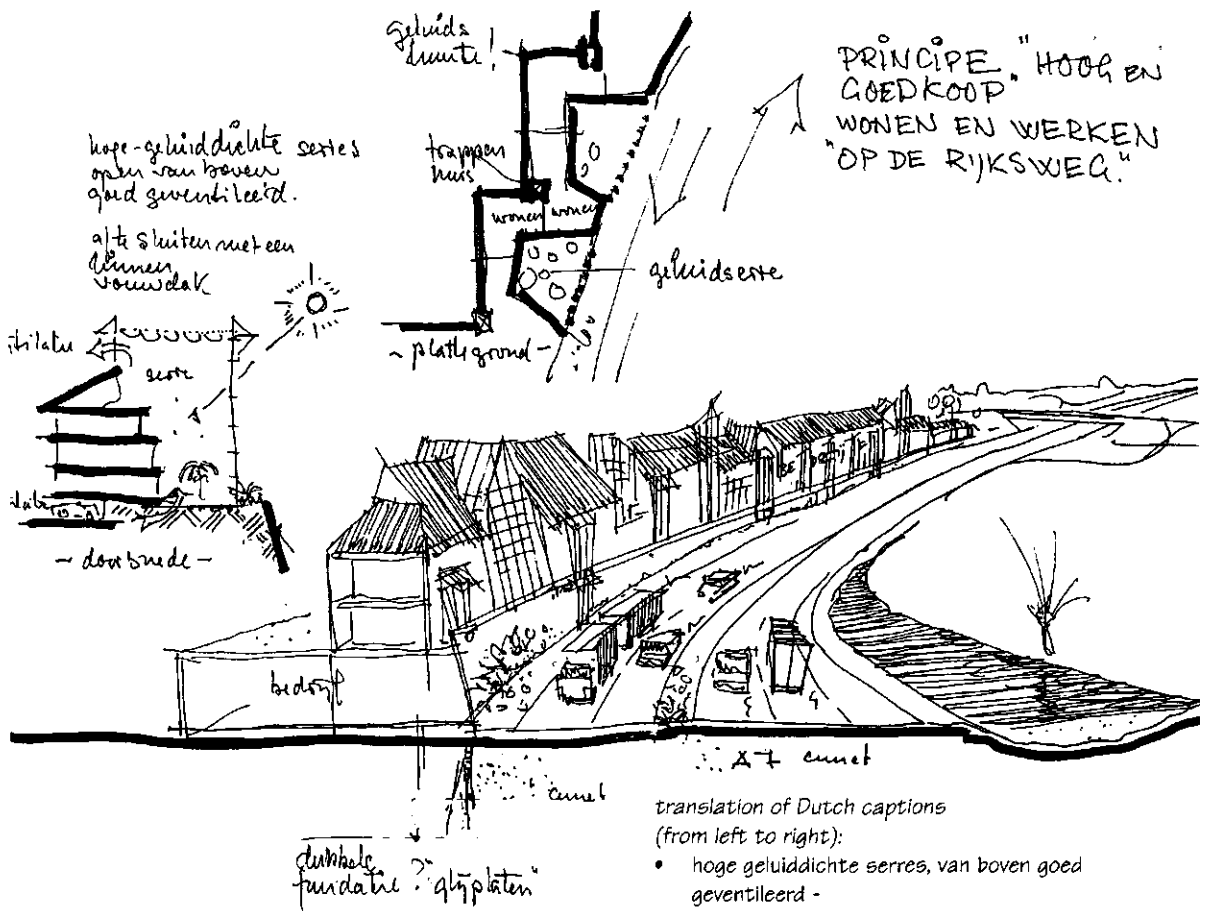 geluids
luwte!
PRINCIPE "HOOG EN
GOEDKOOP"
WONEN EN WERKEN
"OP DE RIJKSWEG."
hoge-geluiddichte serres
open van boven
goed geventileerd.
af te sluiten met een
linnen
vouwdak
trappen
huis
wonen wonen
geluidserre
- plattegrond -
serre
- doorsnede -
bedrijf
cunet
A-7 cunet
dubbele
fundatie ? "glijplaten"
translation of Dutch captions
(from left to right):
• hoge geluiddichte serres, van boven goed
geventileerd -